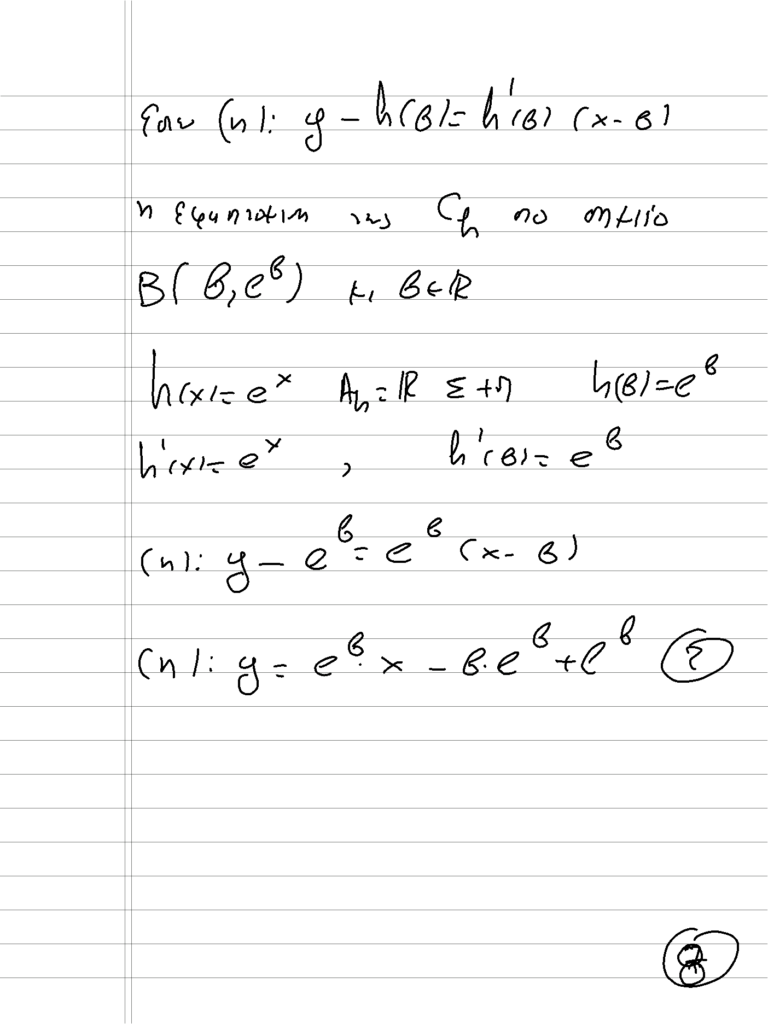 Έστω (η): y - h(β) = h'(β) (x - β)
η εφαπτομένη της C_h στο σημείο
B(β, e^β) με β ∈ ℝ
h(x) = e^x A_h = ℝ Σ+η h(β) = e^β
h'(x) = e^x , h'(β) = e^β
(η): y - e^β = e^β (x - β)
(η): y = e^β · x - β · e^β + e^β ②